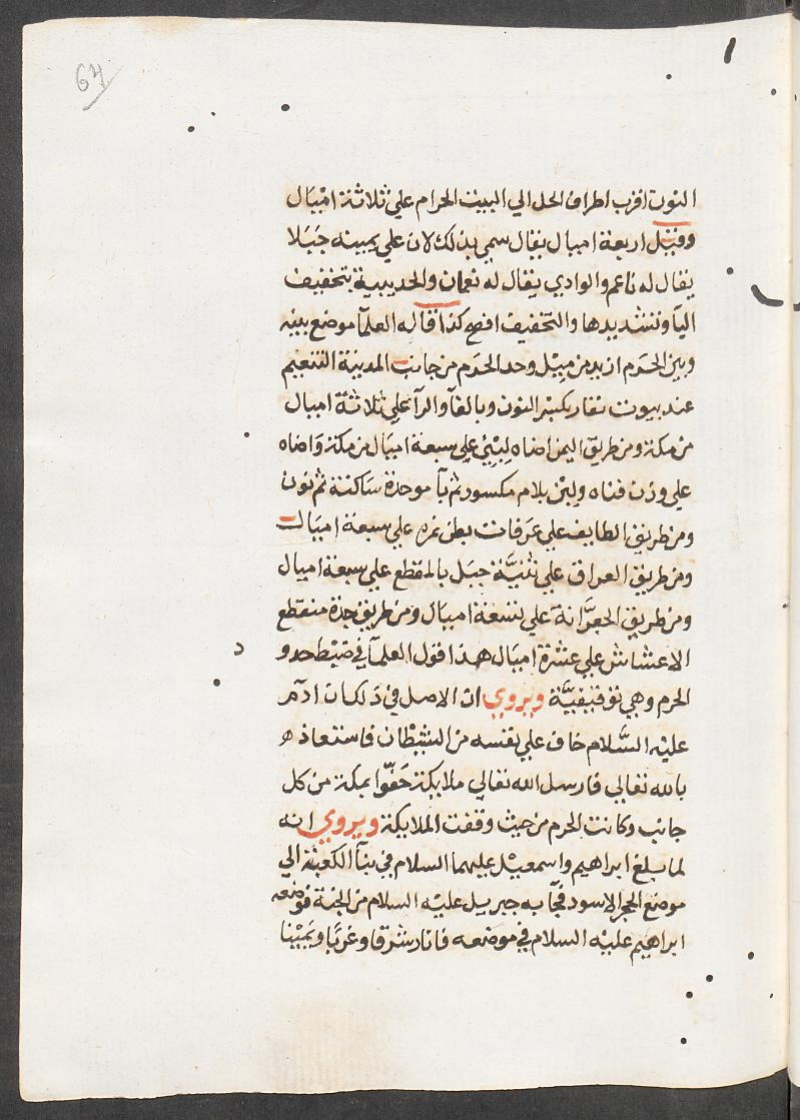 64
النون اقرب اطراف الحل الي البيت الحرام علي ثلاثة اميال
وقيل اربعة اميال يقال سمي بذلك لان علي يمينه جبلا
يقال له ناعم والوادي يقال له نعمان والحديبية بتخفيف
اليآ وتشديدها والتخفيف افصح كذا قاله العلمآ موضع بينه
وبين الحرم ازيد من ميل وحد الحرم من جانب المدينة التنعيم
عند بيوت نفار بكسر النون وبالفآ والرآ علي ثلاثة اميال
من مكة ومن طريق اليمن اضاه لبن علي سبعة اميال من مكة واضاه
علي وزن قناه ولبن بلام مكسور ثم بآ موحدة ساكنة ثم نون
ومن طريق الطايف علي عرفات بطن نمره علي سبعة اميال
ومن طريق العراق علي ثنيّة جبل بالمقطع علي سبعة اميال
ومن طريق الجعرّانة علي تسعة اميال ومن طريق جدة منقطع
الاعشاش علي عشرة اميال هذا قول العلمآ في ضبط حدو
د
الحرم وهي توقيفيّة ويروي ان الاصل في ذلك ان ادم
عليه السّلام خاف علي نفسه من الشيطان فاستعاذ
بالله تعالي فارسل الله تعالي ملايكة حفّوا بمكة من كل
جانب وكانت الحرم من حيث وقفت الملايكة ويروي انه
لما بلغ ابراهيم واسمعيل عليهما السلام في بنآ الكعبة الي
موضع الحجر الاسود فجآ به جبريل عليه السلام من الجنة فوضعه
ابراهيم عليه السلام في موضعه فانار شرقا وغربا ويمينا